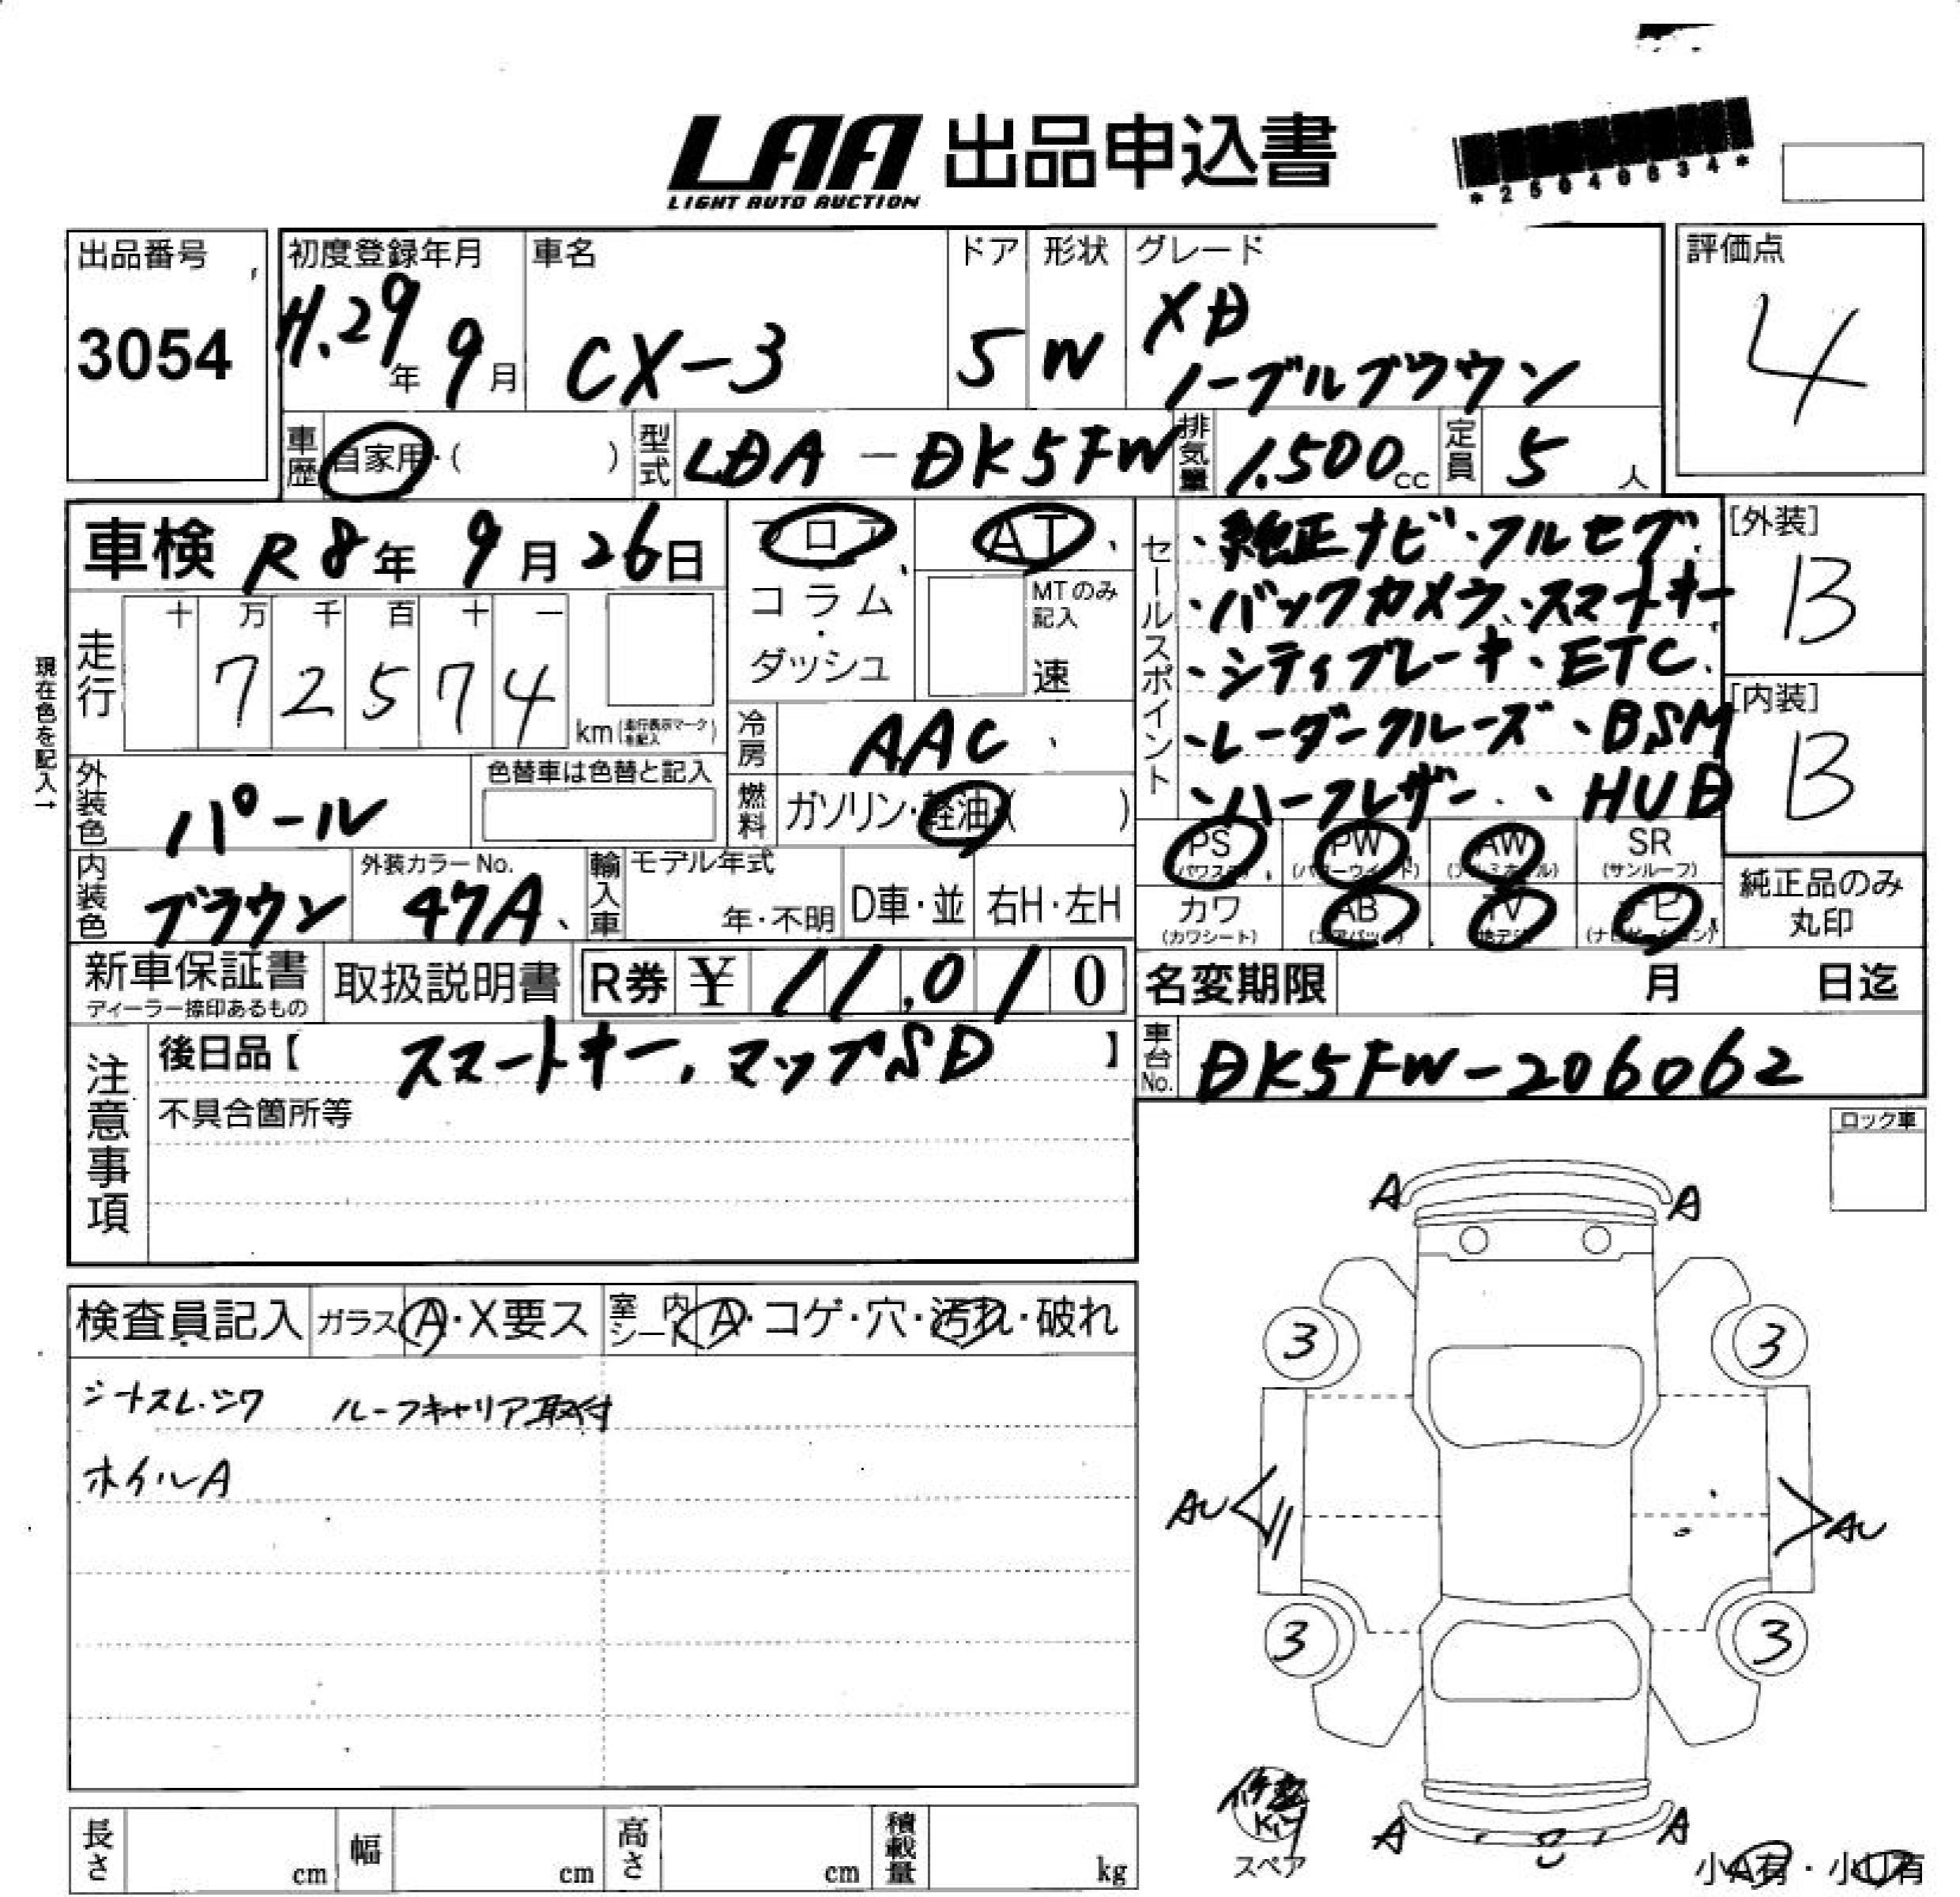 LAA 出品申込書
LIGHT AUTO AUCTION
*25040634*
出品番号
3054
初度登録年月
H.29年 9月
車名
CX-3
ドア
5
形状
W
グレード
XD
ノーブルブラウン
評価点
4
車歴 自家用・( )
型式 LDA-DK5FW
排気量 1.500cc
定員 5人
車検 R8年 9月 26日
フロア
コラム
・
ダッシュ
AT
MTのみ記入
速
現在色を記入→
走行
十 万 千 百 十 一
7 2 5 7 4
km(走行表示マークを記入)
冷房 AAC
燃料 ガソリン・軽油( )
セールスポイント
・純正ナビ・フルセグ
・バックカメラ、スマートキー
・シティブレーキ、ETC
・レーダークルーズ、BSM
・ハーフレザー、HUD
[外装]
B
[内装]
B
外装色 パール
色替車は色替と記入
内装色 ブラウン
外装カラーNo.
47A
輸入車 モデル年式
年・不明
D車・並
右H・左H
PS (パワステ)
PW (パワーウインド)
AW (アルミホイル)
SR (サンルーフ)
カワ (カワシート)
AB (エアバッグ)
TV (地デジ)
ナビ (ナビゲーション)
純正品のみ
丸印
新車保証書
ディーラー捺印あるもの
取扱説明書
R券 ¥ 11,010
名変期限 月 日迄
注意事項
後日品【 スマートキー、マップSD 】
不具合箇所等
車台No. DK5FW-206062
ロック車
検査員記入 ガラス A・X要ス
室内シート A・コゲ・穴・汚れ・破れ
シートスレ.シワ ルーフキャリア取付
ホイルA
A A
3 3
AU AU
3 3
A A
修理
Kit
スペア
小A有・小U有
長さ cm
幅 cm
高さ cm
積載量 kg